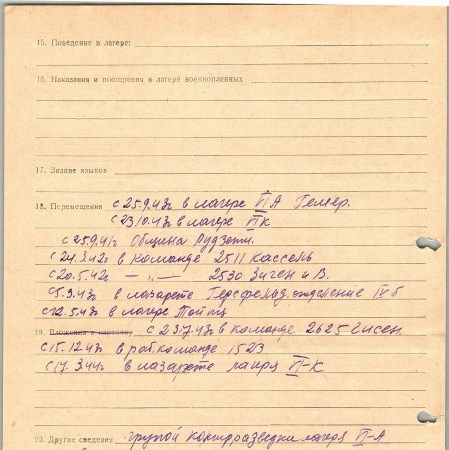 15. Поведение в лагере:
16. Наказания и поощрения в лагере военнопленных
17. Знание языков
18. Перемещения с 25.9.43г в лагере VI А Гемер.
с 23.10.43г в лагере VI К
с 25.9.41г Община
с 24.3.42г в команде 2511 кассель
с 20.5.42г — „ — 2530 Зиген и В.
с 5.3.43г в лазарете Герсфельд. отделение IX б
с 12.5.43г в лагере
19. Вложения в карточку с 23.7.43г в команде 2625 Гисен.
с 15.12.43г в раб. команде 1523
с 17.3.44г в лазарете лагеря VI-К
20. Другие сведения групой контрразведки лагеря VI-А